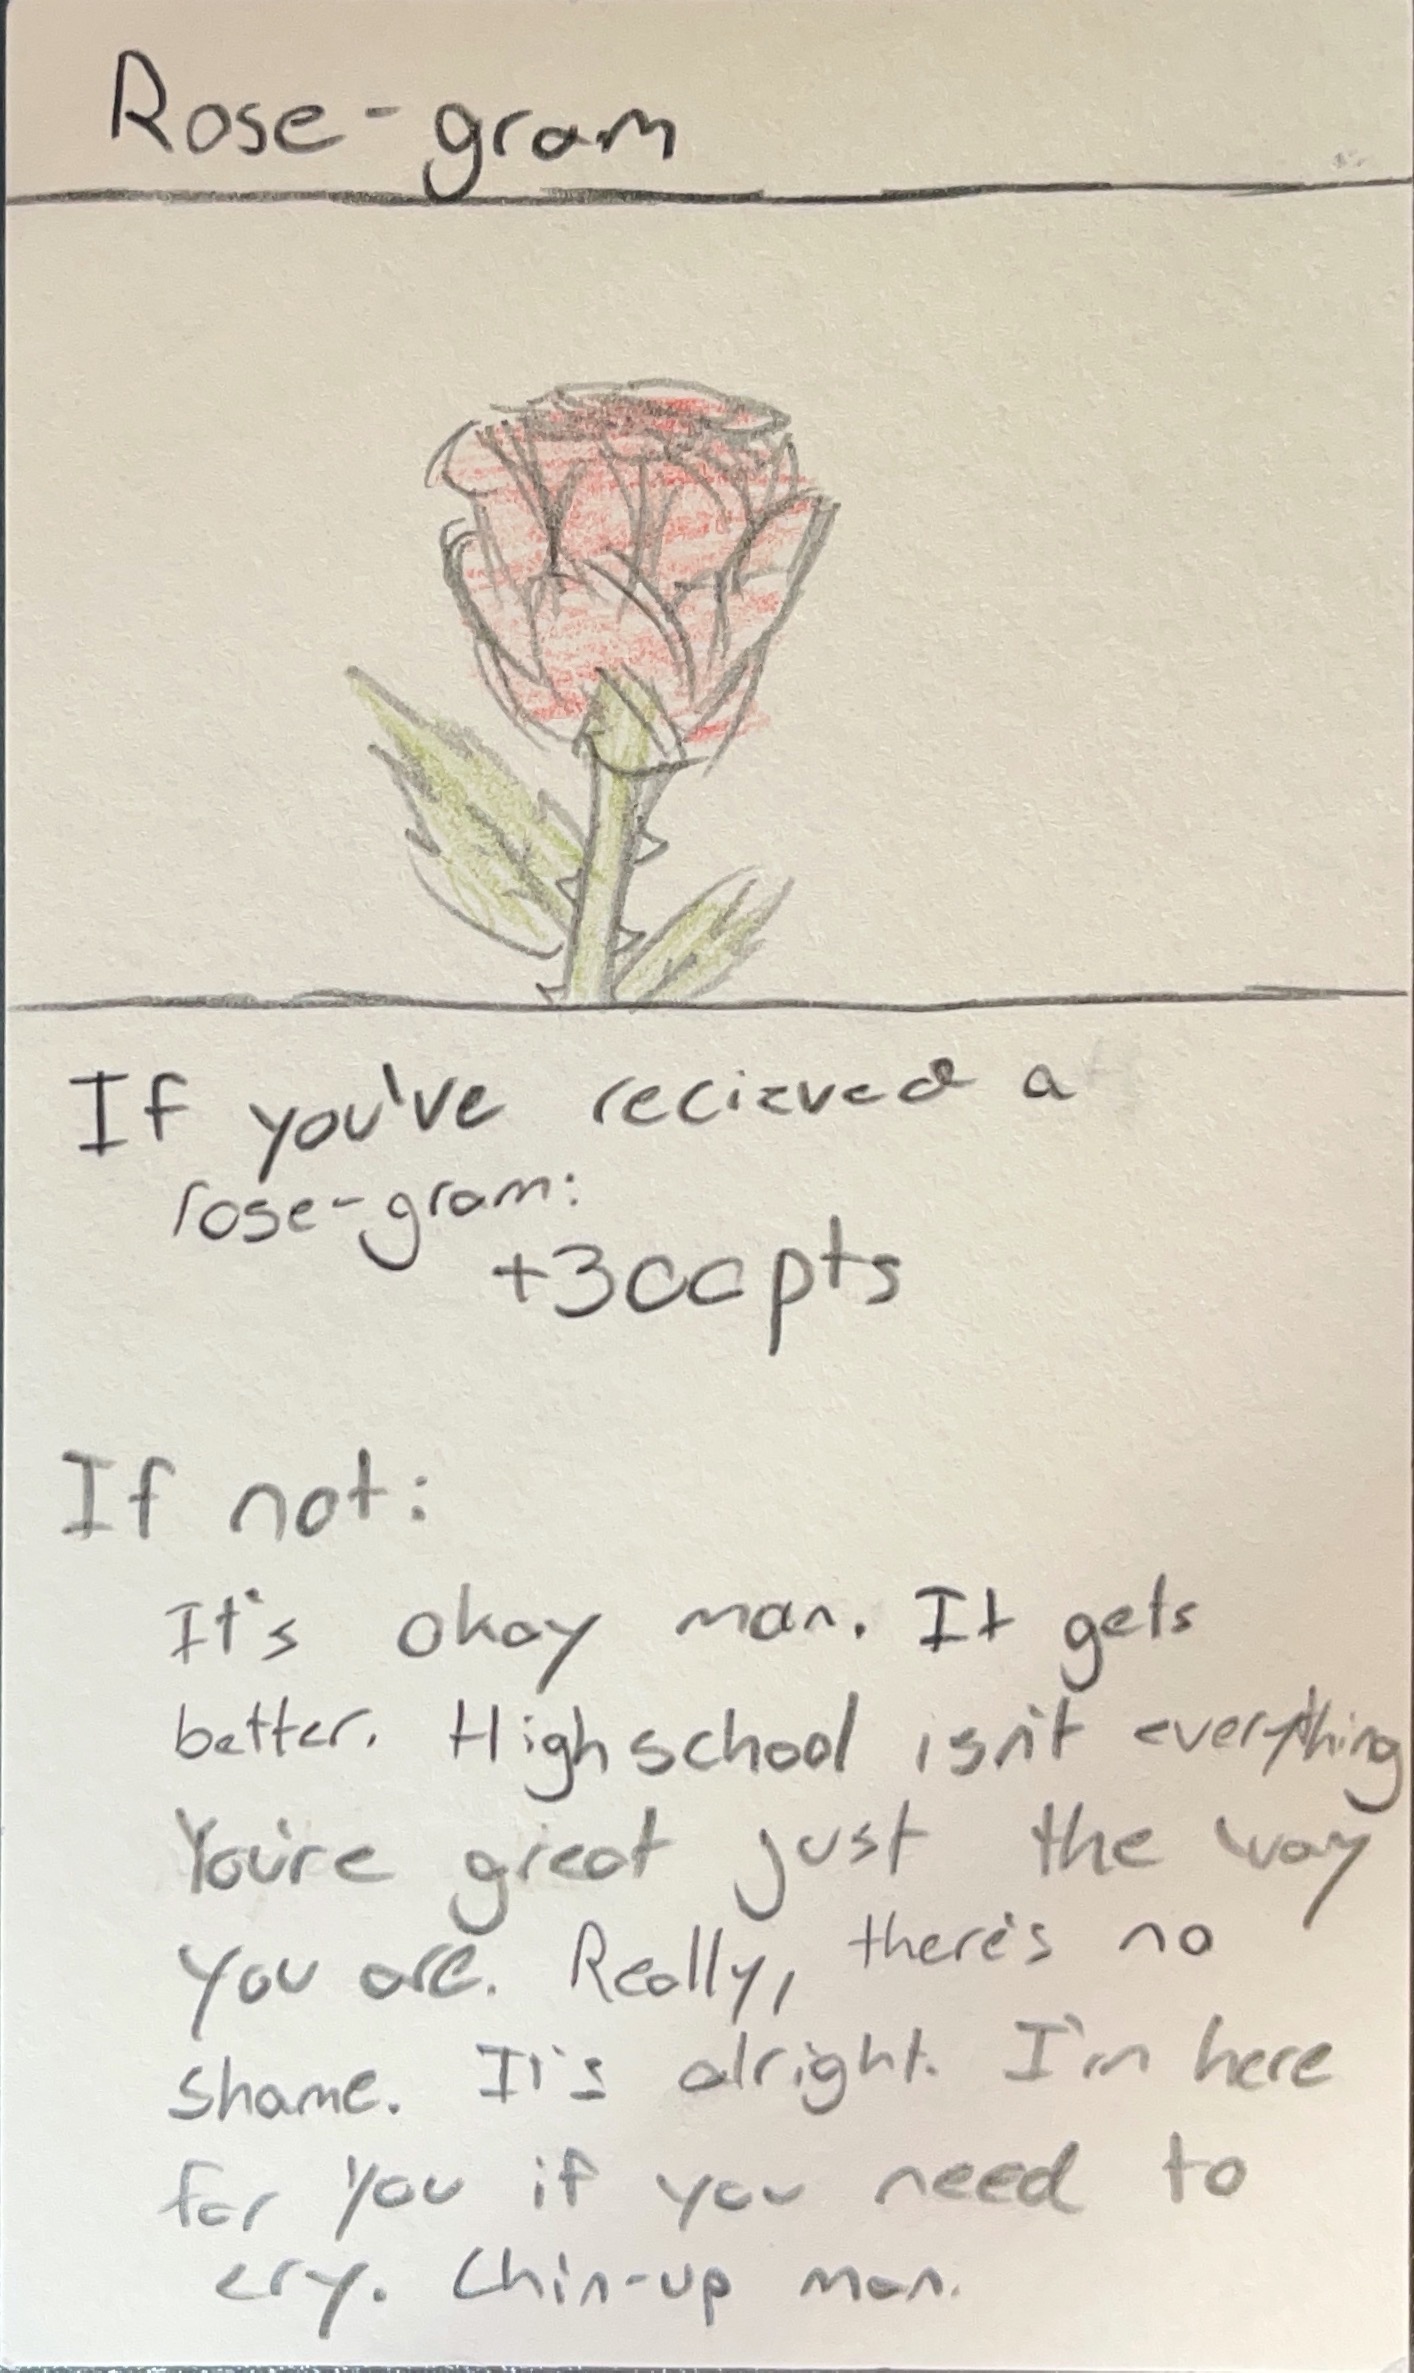 Rose-gram
If you've recieved a
rose-gram:
+300pts
If not:
It's okay man. It gets
better. Highschool isn't everything
You're great just the way
you are. Really, there's no
shame. It's alright. I'm here
for you if you need to
cry. Chin-up man.